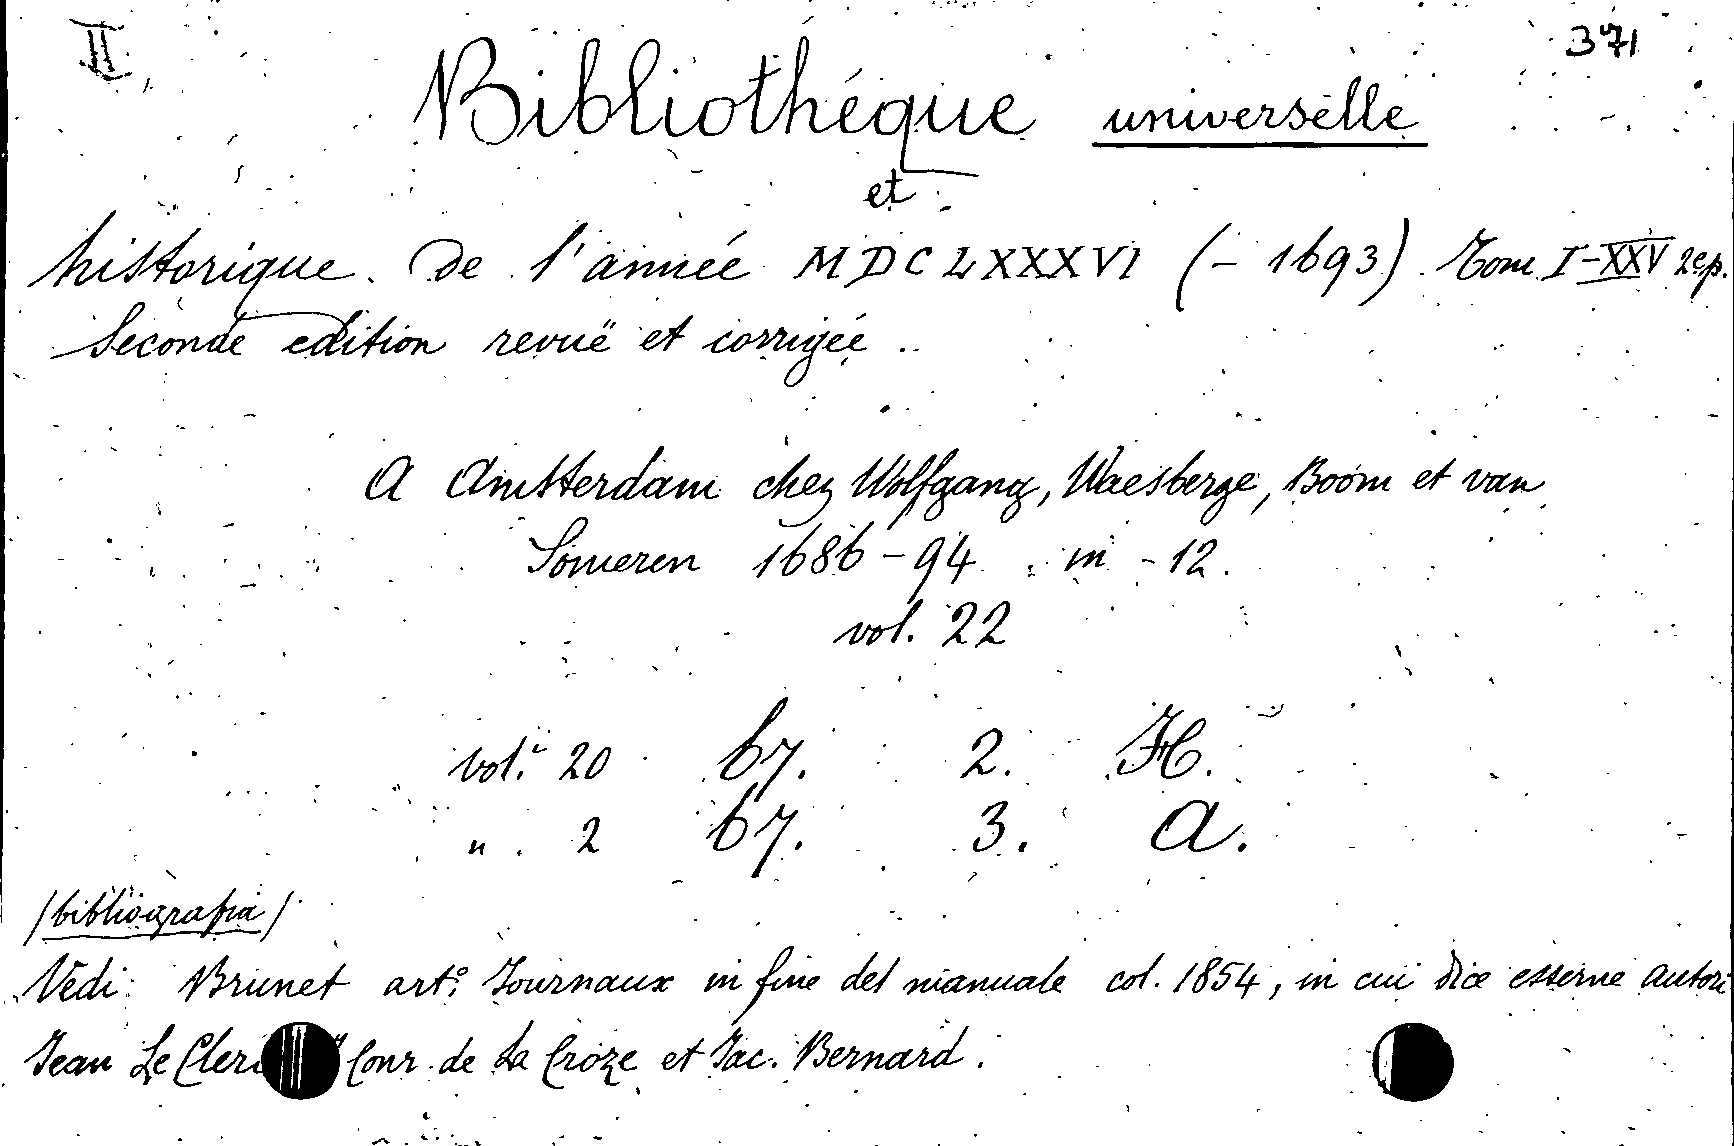 II, 371
Bibliothéque universelle
et
historique. De l'année MDCLXXXVI (- 1693) Tom I-XXV 2ep.
Seconde edition revuë et corrigée ..
A Amsterdam chez Wolfgang, Waesberge, Boom et van
Someren 1686-94 in-12.
vol. 22
vol. 20 67. 2. H.
" . 2 67. 3. A.
/bibliografia/
Vedi: Brunet art: Journaux in fine del manuale col. 1854, in cui dice esserne autori
Jean Le Cler Cour de La Croze et Jac. Bernard.